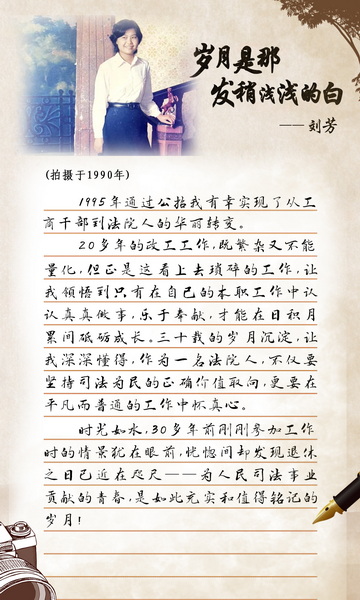 岁月是那
发稍浅浅的白
—— 刘芳
(拍摄于1990年)
1995年通过公招我有幸实现了从工
商干部到法院人的华丽转变。
20多年的政工工作,既繁杂又不能
量化,但正是这看上去琐碎的工作,让
我领悟到只有在自己的本职工作中认
认真真做事,乐于奉献,才能在日积月
累间砥砺成长。三十载的岁月沉淀,让
我深深懂得,作为一名法院人,不仅要
坚持司法为民的正确价值取向,更要在
平凡而普通的工作中怀真心。
时光如水,30多年前刚刚参加工作
时的情景犹在眼前,恍惚间却发现退休
之日已近在咫尺——为人民司法事业
贡献的青春,是如此充实和值得铭记的
岁月!